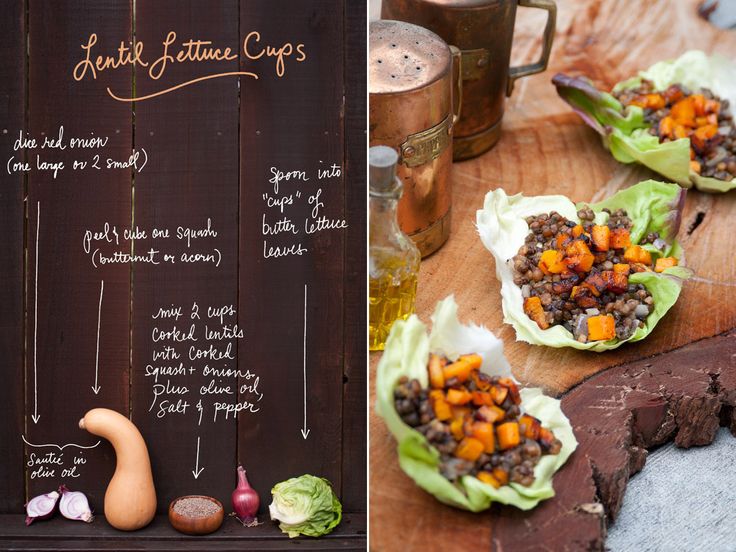 Lentil Lettuce Cups
dice red onion
(one large or 2 small)
peel & cube one squash
(butternut or acorn)
Sauteé in
olive oil
mix 2 cups
cooked lentils
with cooked
squash + onions
plus olive oil,
salt & pepper
Spoon into
"cups" of
butter lettuce
leaves